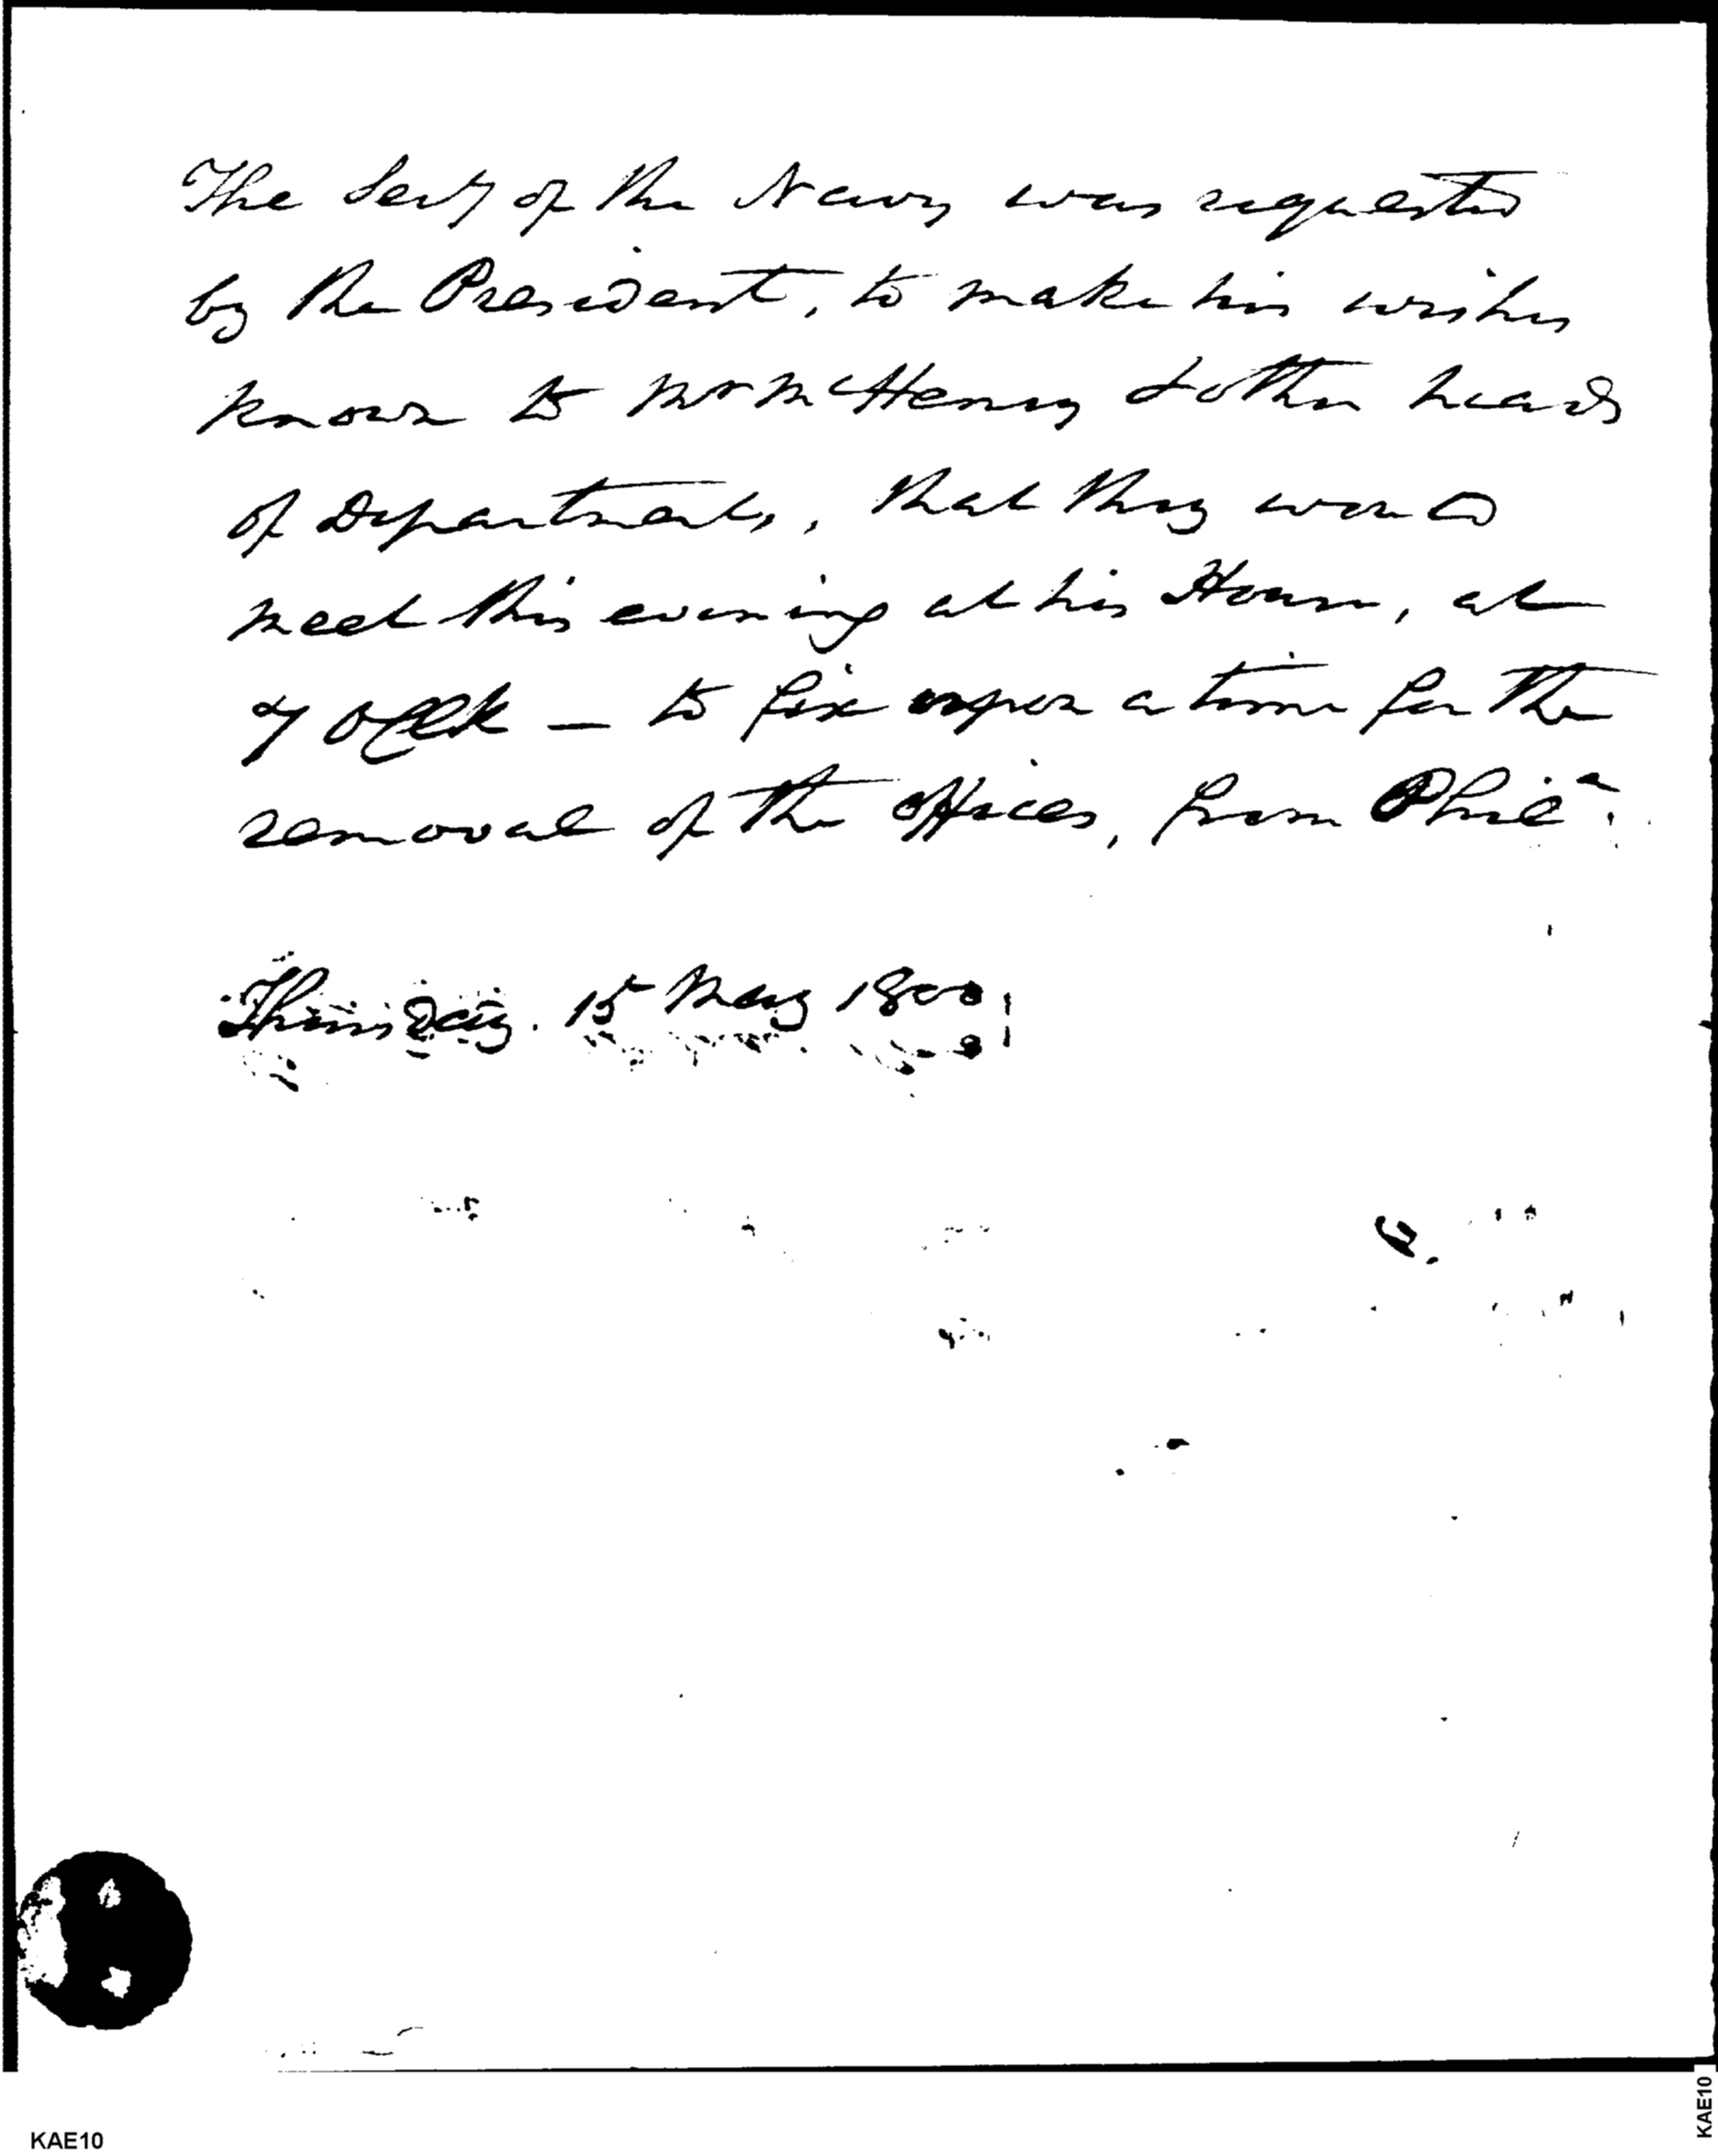 The Secty of the Navy was requested
by the President, to make his wishes
known to Mr McHenry & other heads
of Departments, that they would
meet this evening at his House, at
7 oClk — to fix upon a time for the
removal of the offices, from Phila.
Thursday. 15 May 1800
KAE10
KAE10